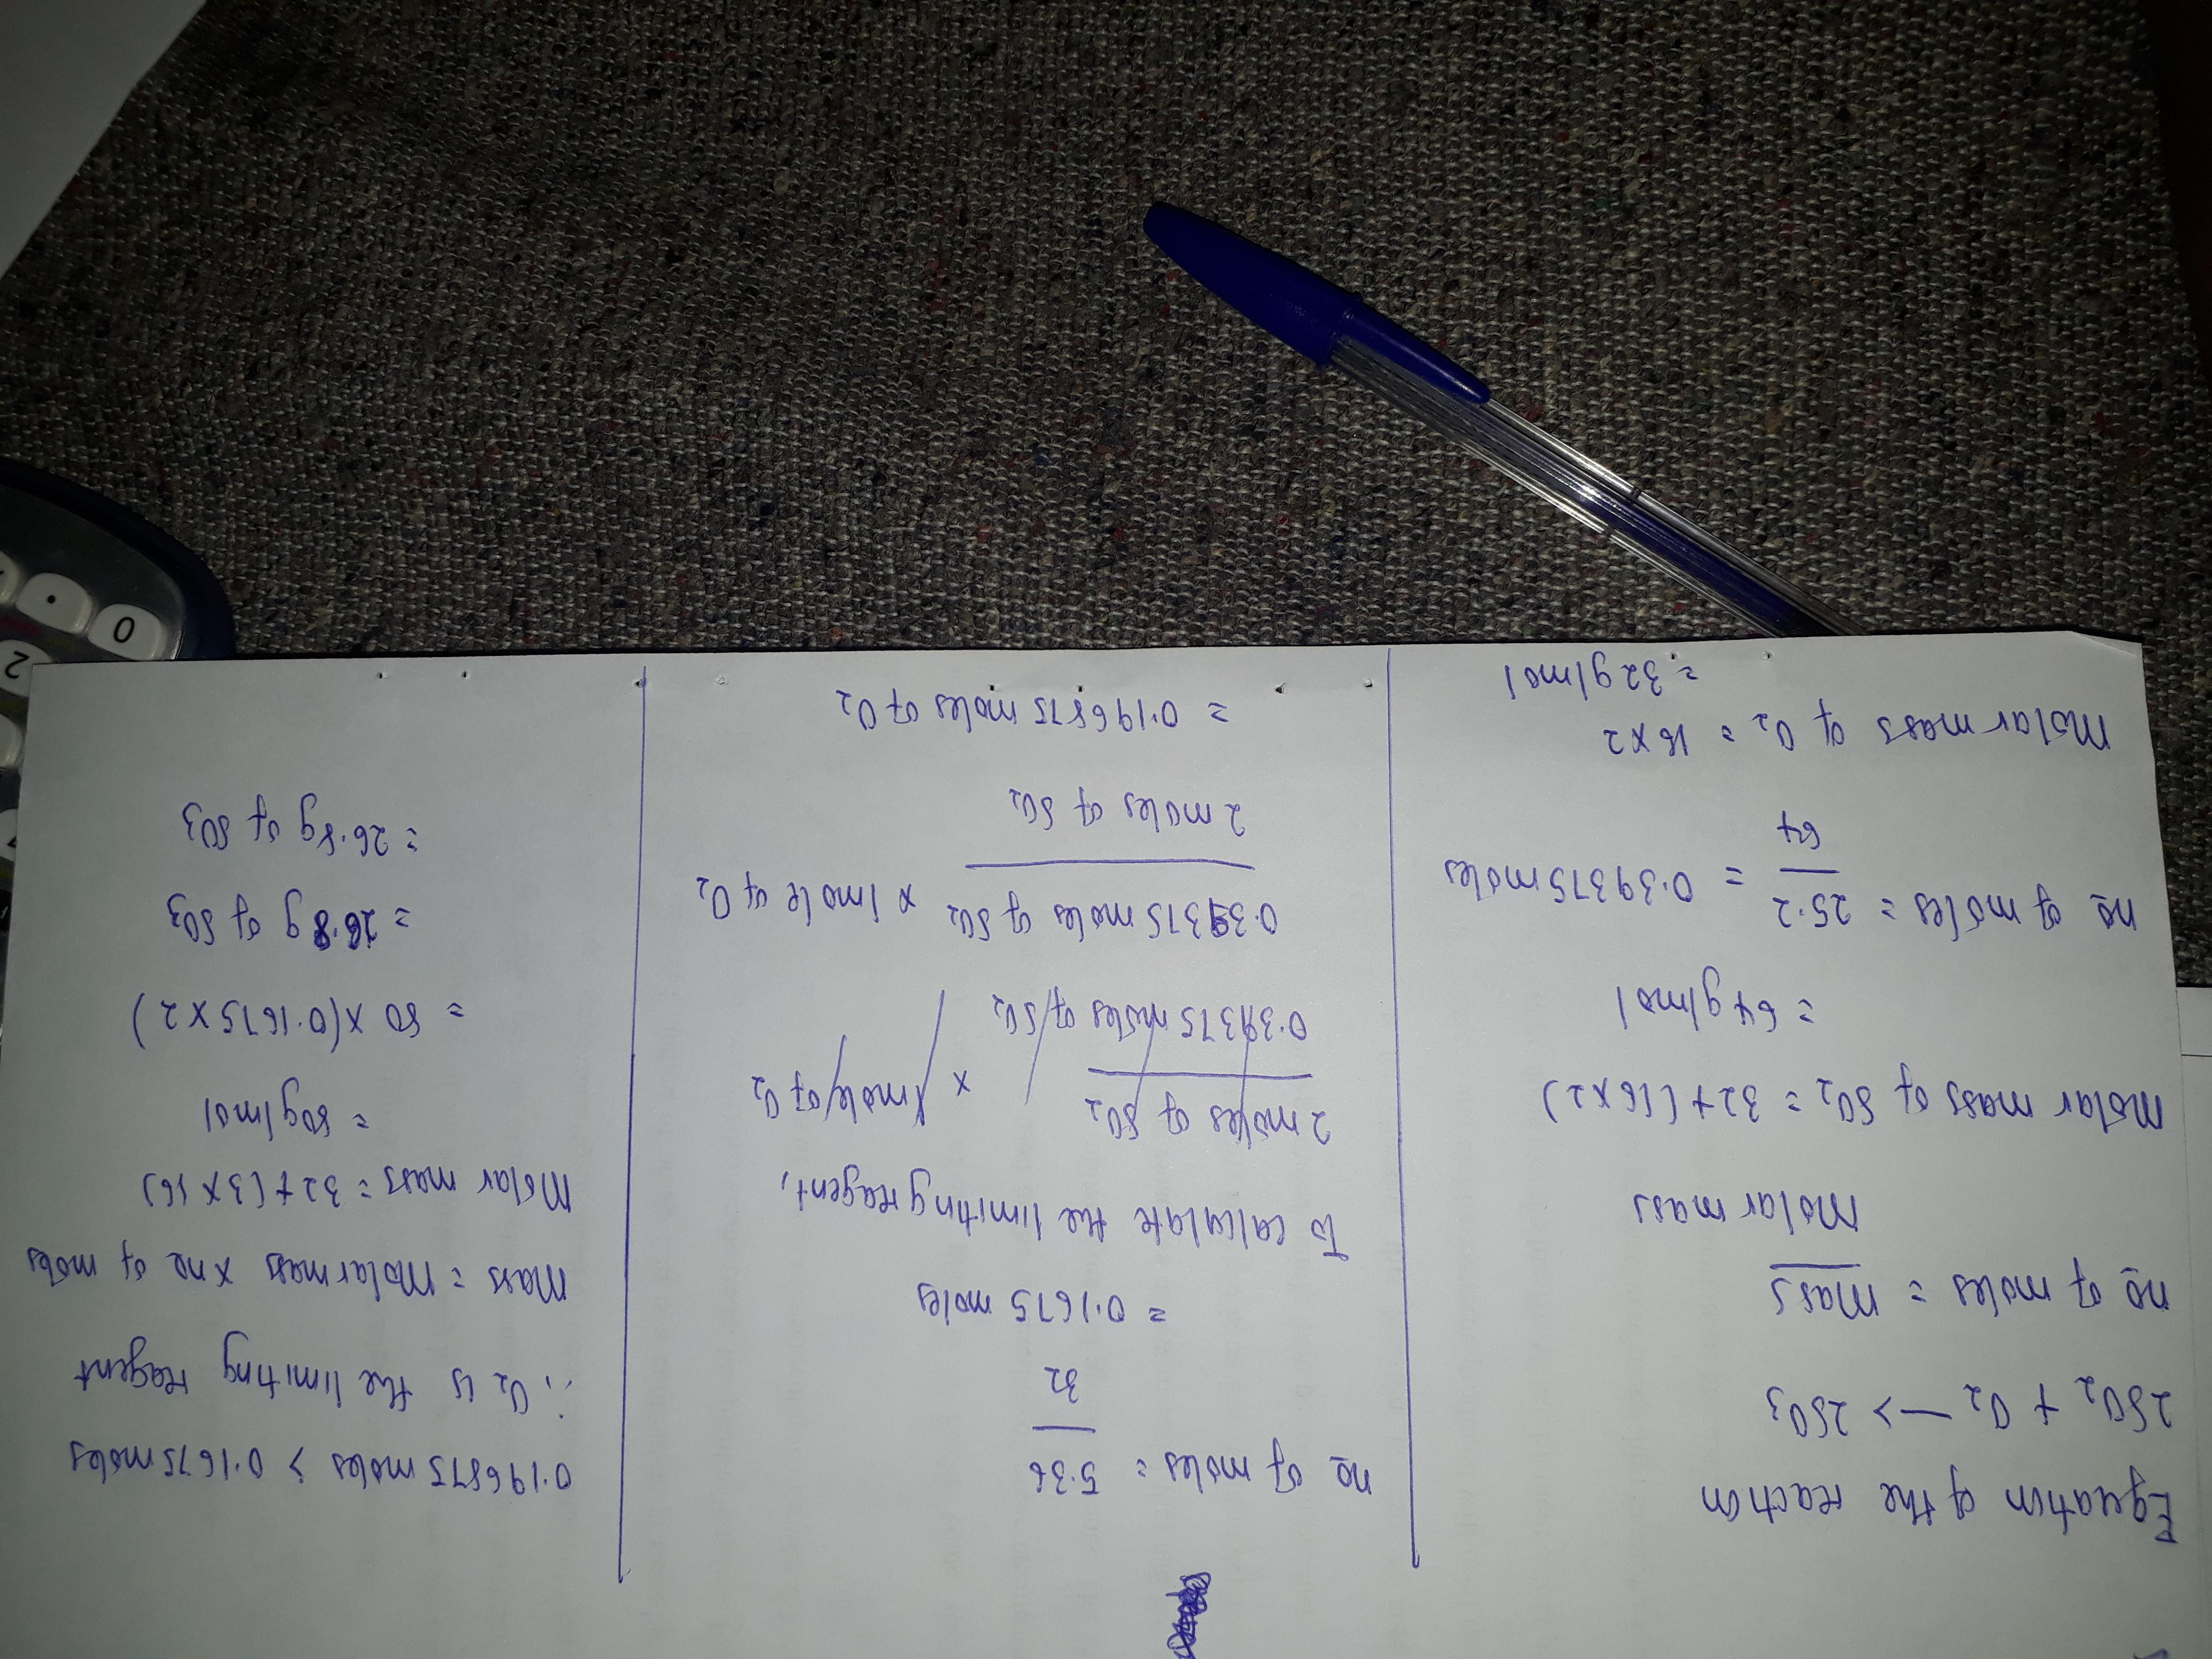 Equation of the reaction
2SO2 + O2 —> 2SO3
no of moles = mass
Molar mass
Molar mass of SO2 = 32+(16×2)
= 64g/mol
no of moles = 25.2 = 0.39375moles
64
Molar mass of O2 = 16×2
= 32g/mol
no of moles = 5.36
32
= 0.1675 moles
To calculate the limiting reagent,
2 moles of SO2 × 1mole of O2
0.39375 moles of SO2
0.39375 moles of SO2 × 1mole of O2
2 moles of SO2
= 0.196875 moles of O2
0.196875 moles > 0.1675 moles
∴ O2 is the limiting reagent
Mass = Molar mass × no of moles
Molar mass = 32+(3×16)
= 80g/mol
= 80 × (0.1675 × 2)
= 26.8g of SO3
= 26.8g of SO3
0
.
2